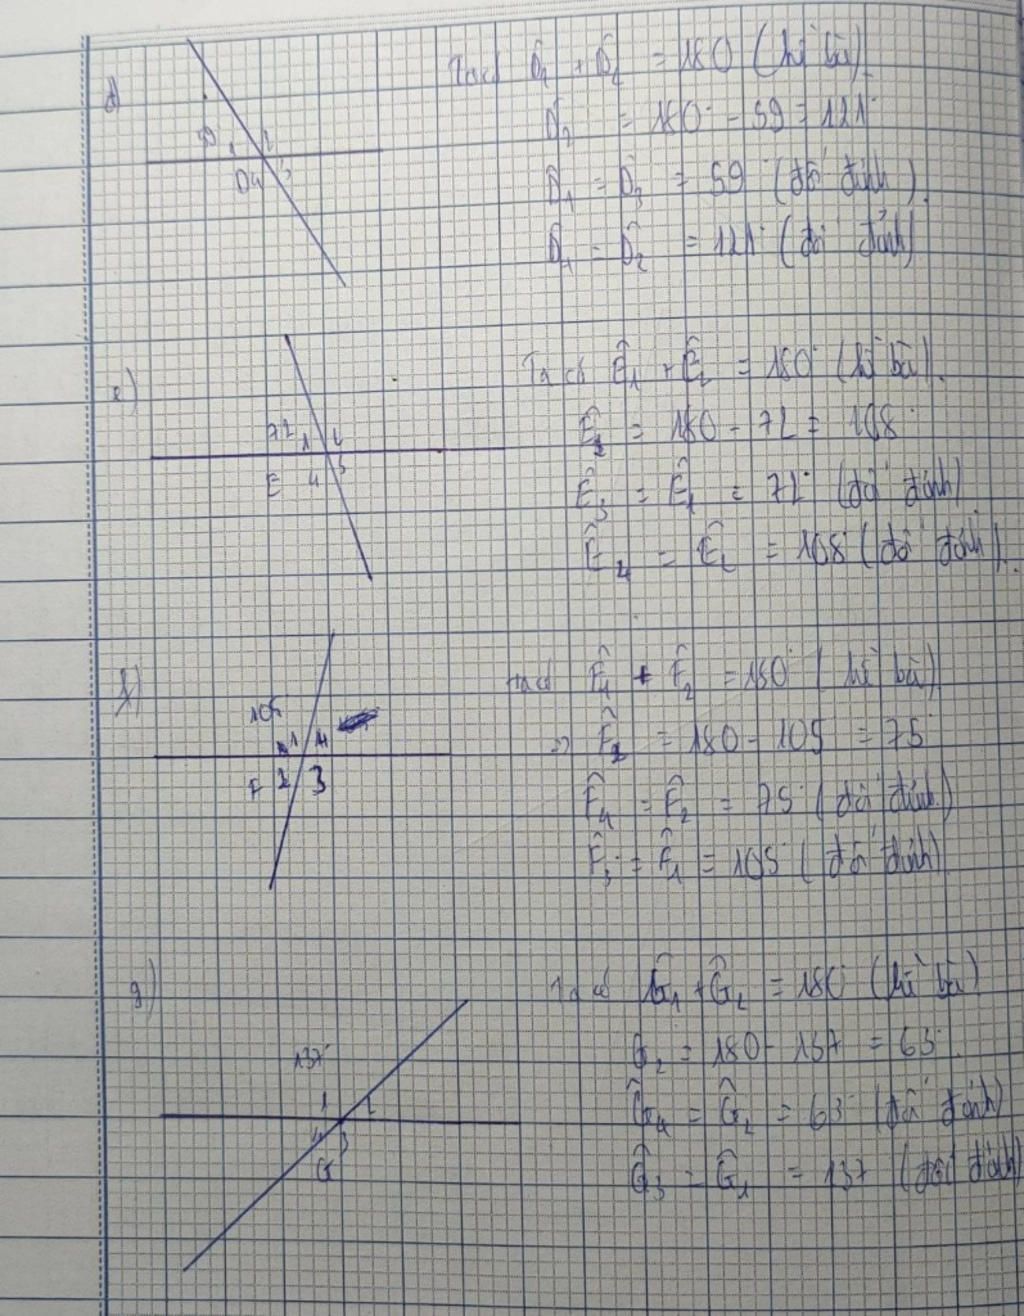 d)
D 1 2
D4 3
Ta có D̂₁ + D̂₂ = 180 (kề bù)
D̂₂ = 180° - 59 = 121°
D̂₁ = D̂₃ = 59° (đối đỉnh).
D̂₄ = D̂₂ = 121° (đối đỉnh)
e)
72 1 2
E 4 3
Ta có Ê₁ + Ê₂ = 180° (kề bù).
Ê₂ = 180 - 72 = 108°
Ê₃ = Ê₁ = 72° (đối đỉnh)
Ê₄ = Ê₂ = 108° (đối đỉnh).
f)
105
1 4
F 2 3
Ta có F̂₁ + F̂₂ = 180° (kề bù)
=> F̂₂ = 180 - 105 = 75°
F̂₄ = F̂₂ = 75° (đối đỉnh)
F̂₃ = F̂₁ = 105° (đối đỉnh)
g)
137°
1 2
4 3
G
Ta có Ĝ₁ + Ĝ₂ = 180° (kề bù)
G₂ = 180 - 137 = 63°.
Ĝ₄ = Ĝ₂ = 63° (đối đỉnh)
Ĝ₃ = Ĝ₁ = 137 (đối đỉnh)